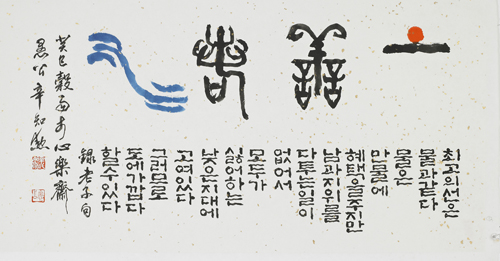 上善若水
최고의선은
물과같다
물은
만물에
혜택을주지만
남과지위를
다투는일이
없어서
모두가
싫어하는
낮은지대에
고여있다
그러므로
도에가깝다
할수있다
錄老子句
癸巳穀雨 心樂齋
愚公辛知